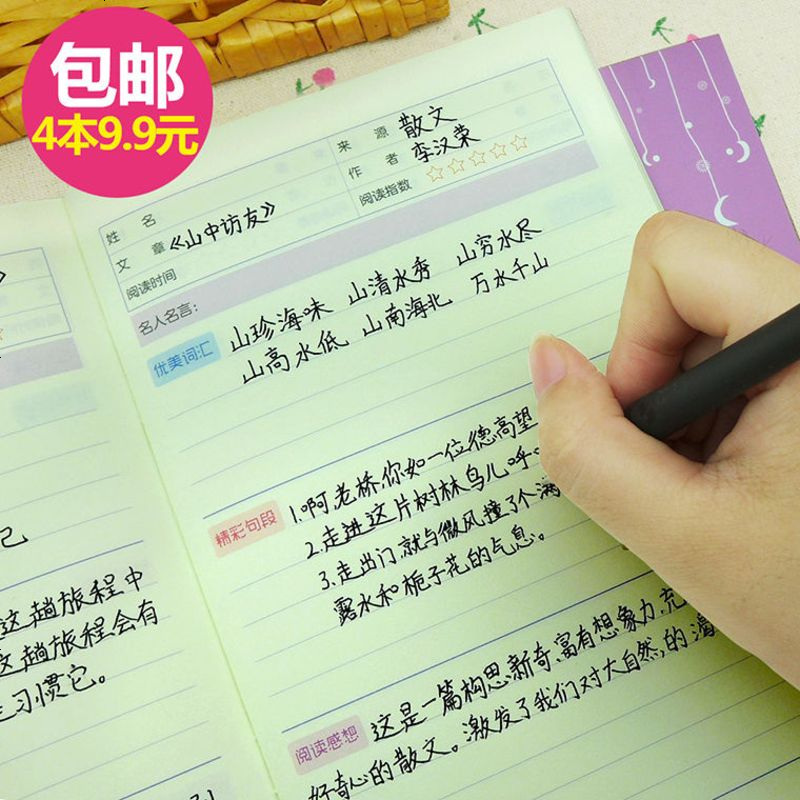 包邮
4本9.9元
来 源 散文
姓 名
作 者 李汉荣
文 章 《山中访友》
阅读指数 ☆☆☆☆☆
阅读时间
名人名言:
优美词汇 山珍海味 山清水秀 山穷水尽
山高水低 山南海北 万水千山
精彩句段 1.啊老桥你如一位德高望
2.走进这片树林鸟儿呼
3.走出门,就与微风撞了个满
露水和栀子花的气息。
阅读感想 这是一篇构思新奇,富有想象力,充
好奇心的散文。激发了我们对大自然,的
己
这趟旅程中
这趟旅程会有
习惯它。